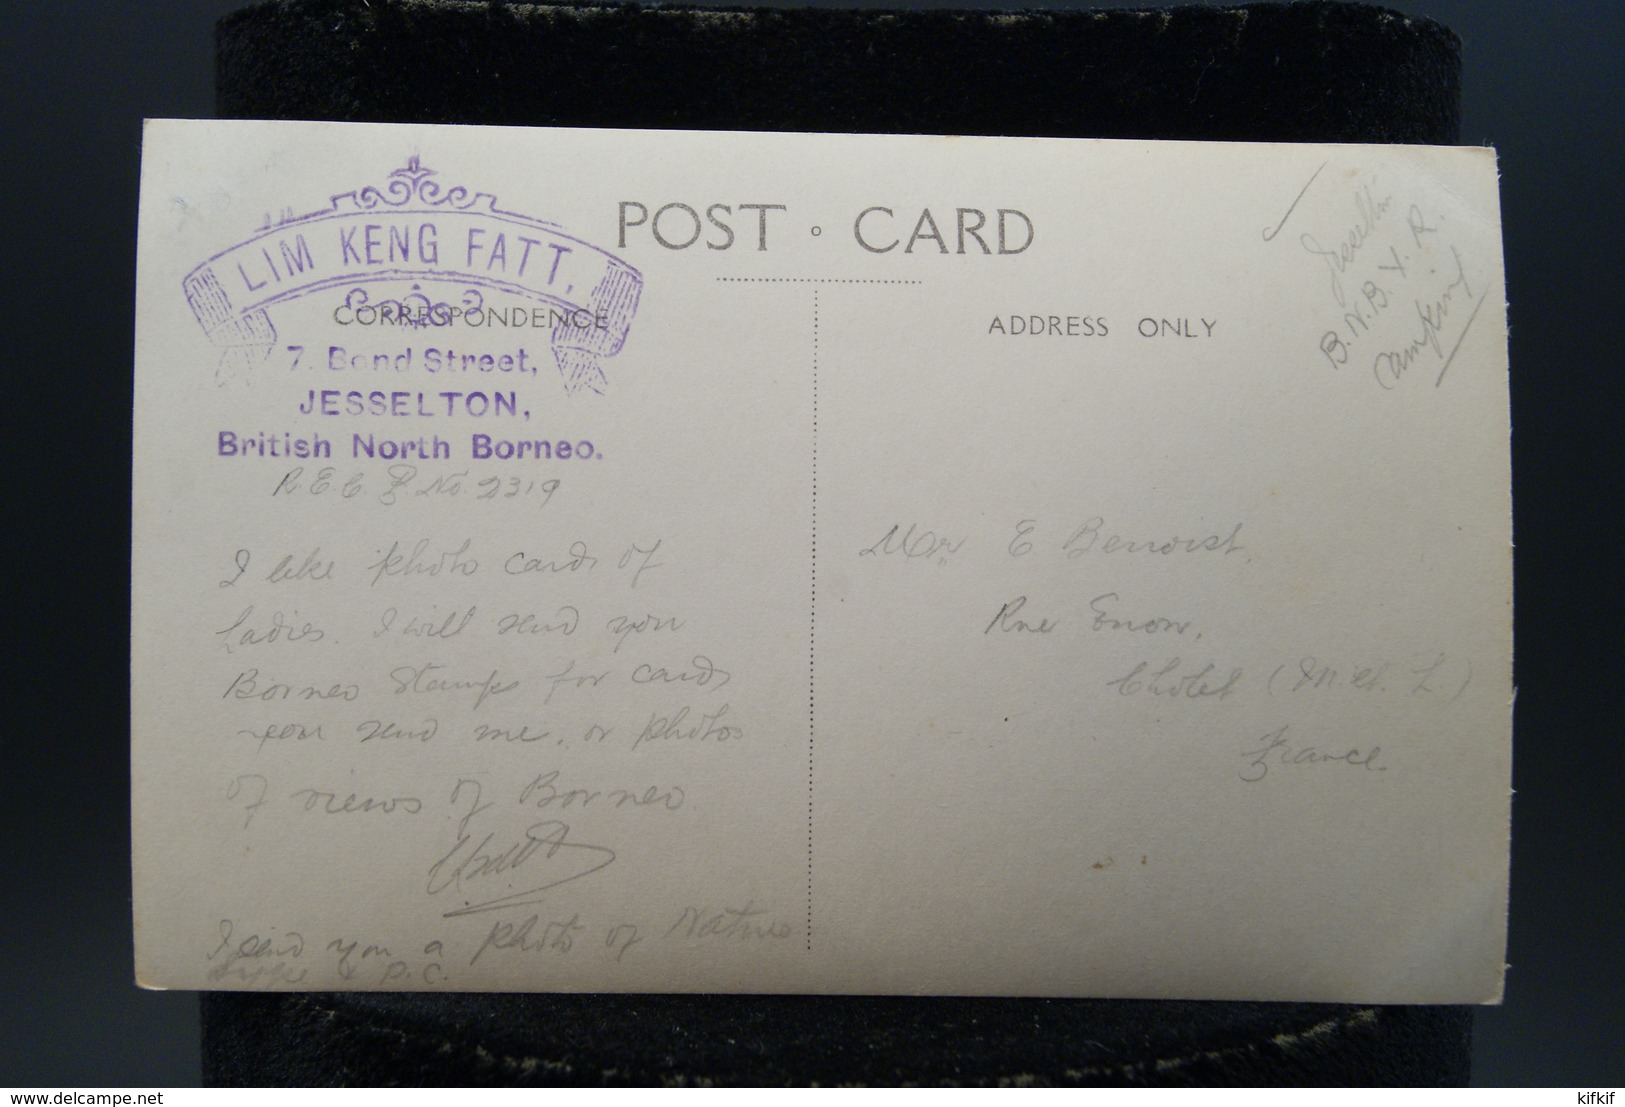 LIM KENG FATT,
POST CARD
CORRESPONDENCE
7. Bond Street,
JESSELTON,
British North Borneo.
R.E.C.P. No. 2319
I like photo cards of
ladies. I will send you
Borneo stamps for cards
you send me. or photos
of views of Borneo
I send you a photo of Native
& P.C.
ADDRESS ONLY
Jesselton
B.N.B.
Mr E Benoist,
Rue
Cholet (M. et. L.)
France
delcampe.net
kifkif